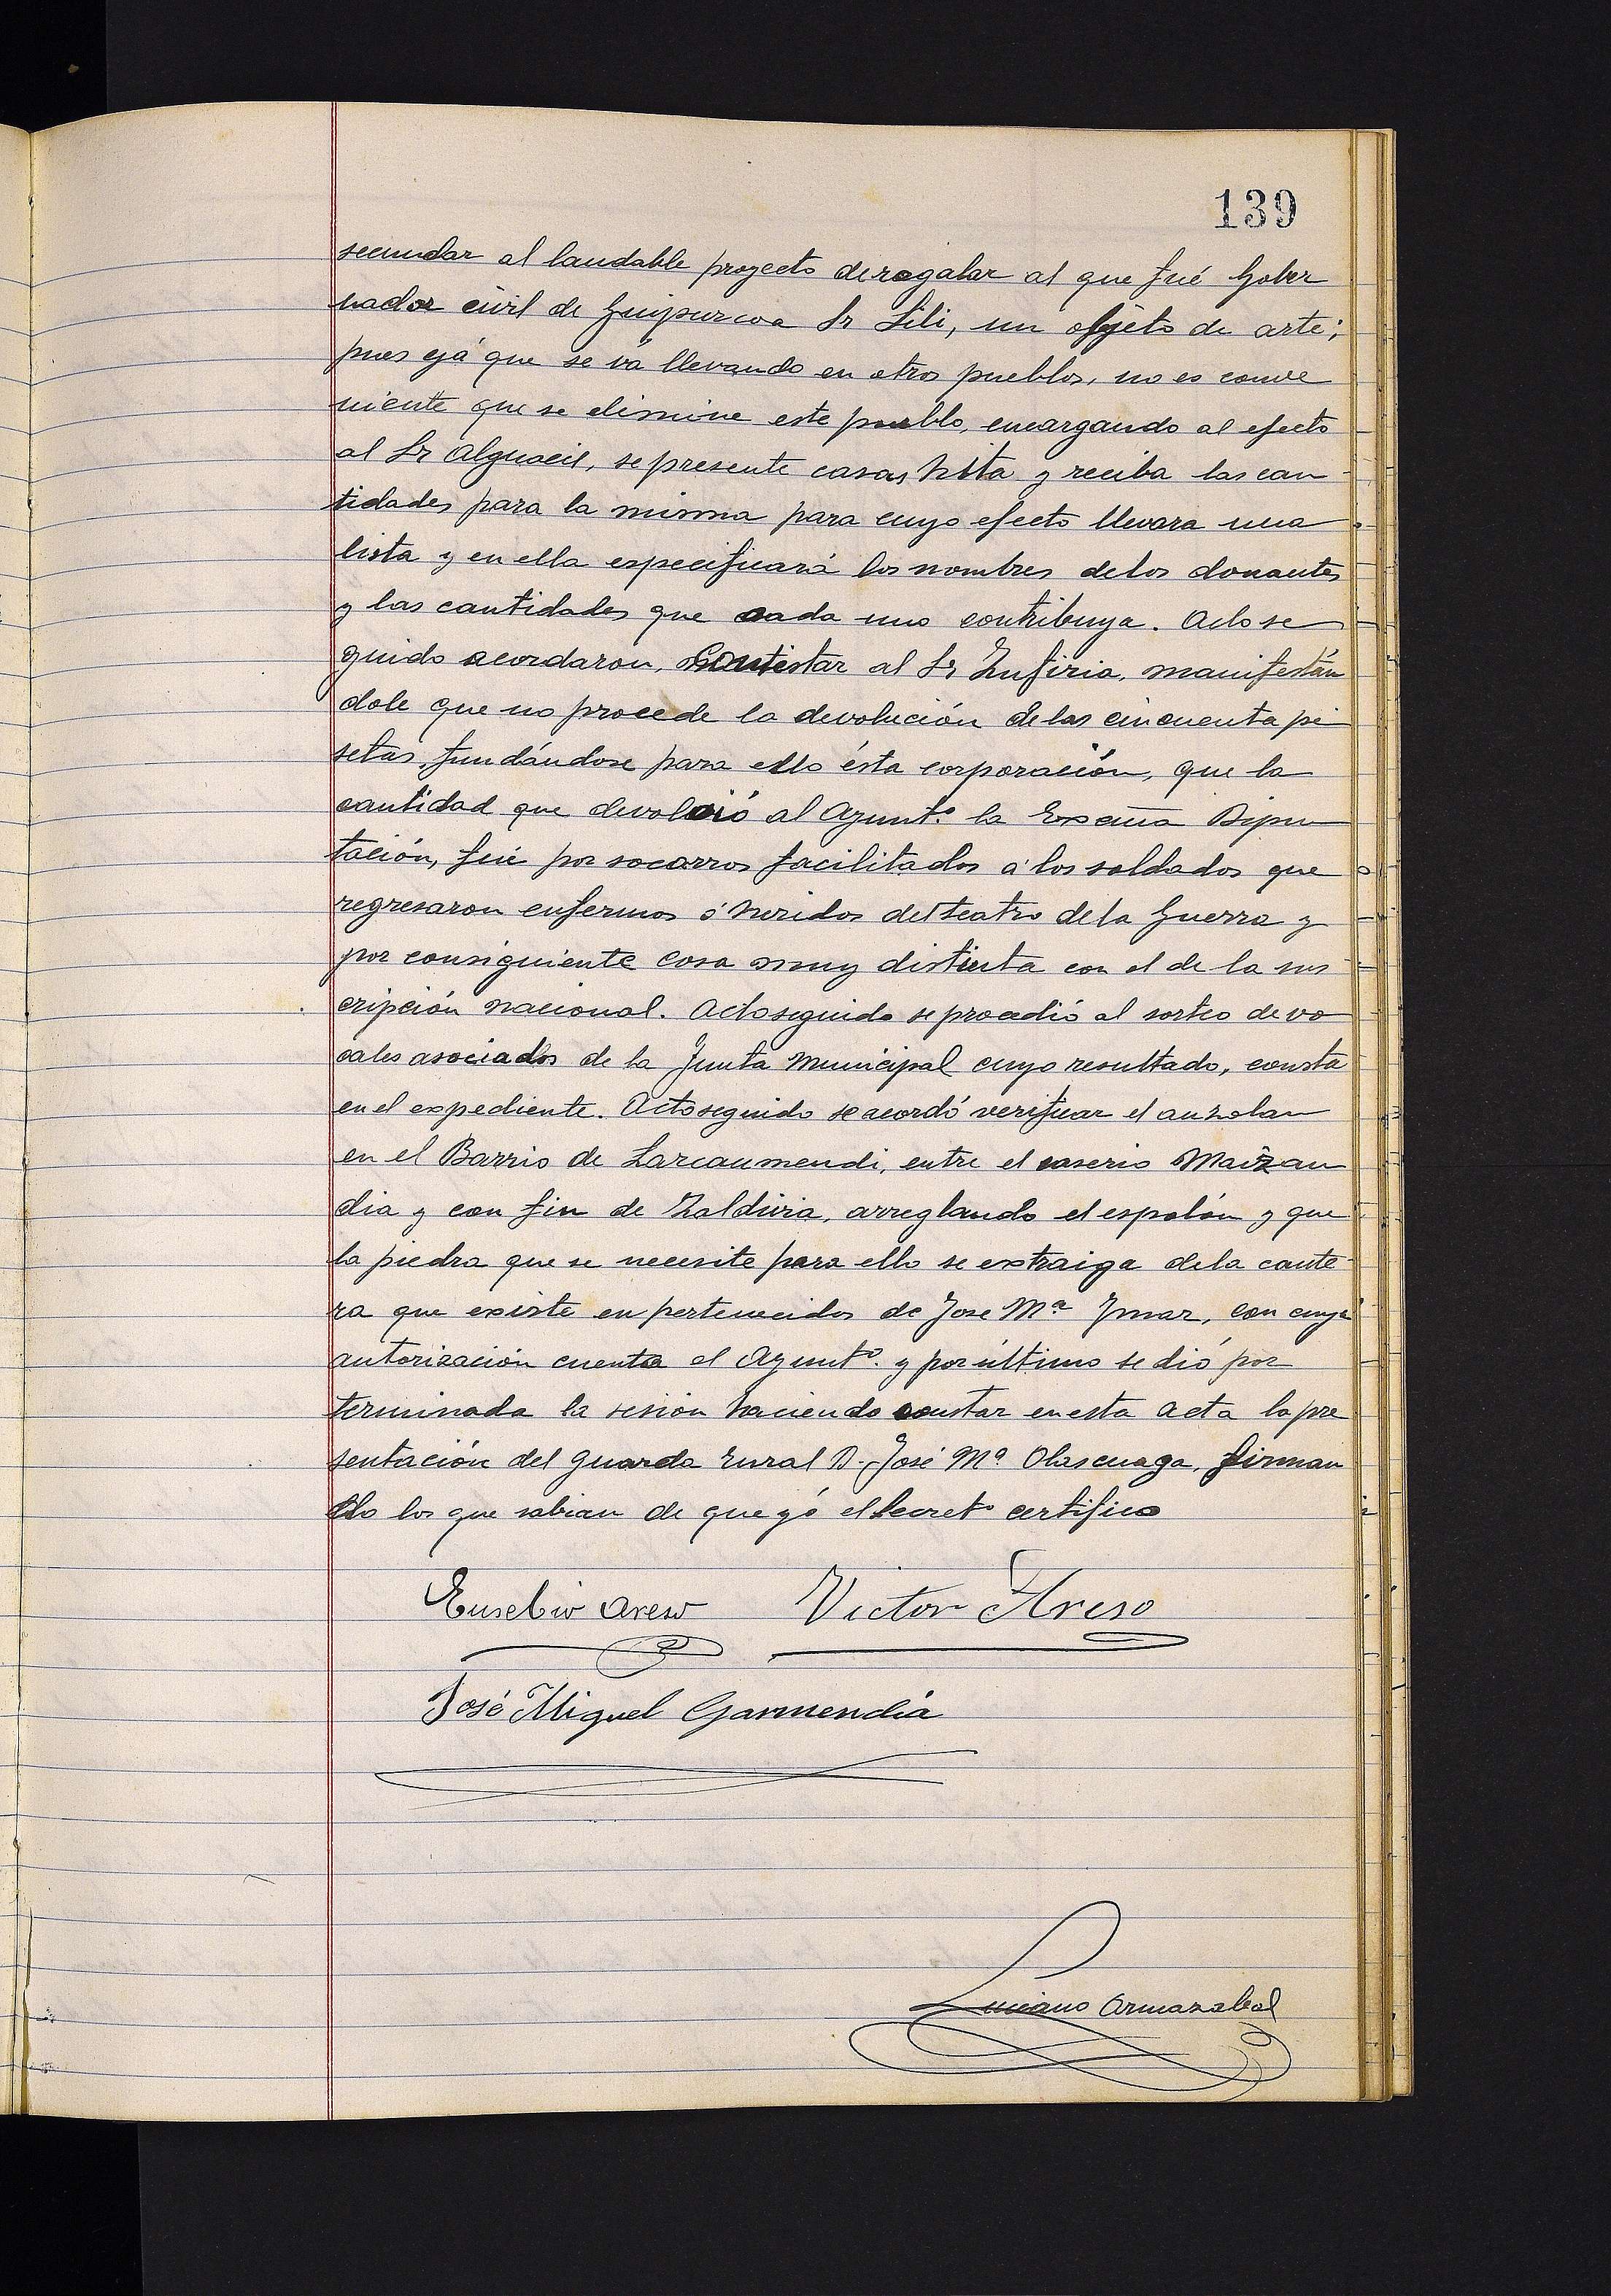 139
secundar al laudable proyecto de regalar al que fué Gober
nador civil de Guipuzcoa Sr Lili, un objeto de arte;
pues yá que se vá llevando en otros pueblos, no es conve
niente que se elimine este pueblo, encargando al efecto
al Sr Alguacil, se presente casas hita y reciba las can
tidades para la misma para cuyo efecto llevara una
lista y en ella especificará los nombres de los donantes
y las cantidades que cada uno contribuya. Acto se
guido acordaron, contestar al Sr Zufiria, manifestán
dole que no procede la devolución de las cincuenta pe
setas, fundándose para ello ésta corporación, que la
cantidad que devolvió al Ayuntº la Excma Dipu
tación, fué por socorros facilitados á los soldados que
regresaron enfermos ó heridos del teatro de la Guerra y
por consiguiente cosa muy distinta con el de la sus
cripción nacional. Acto seguido se procedió al sorteo de vo
cales asociados de la Junta Municipal cuyo resultado, consta
en el expediente. Acto seguido se acordó verificar el auzolan
en el Barrio de Larcaumendi, entre el caserio Maizan
dia y con fin de Zaldivia, arreglando el espolón y que
la piedra que se necesite para ello se extraiga de la cante
ra que existe en pertenecidos de Jose Mª Ymaz, con cuya
autorización cuenta el Ayuntº. y por último se dió por
terminada la sesion haciendo constar en esta acta la pre
sentación del guarda rural D. José Mª Olascuaga, firman
do los que sabian de que yó el Secretº certifico
Eusebio Areso Victor Areso
José Miguel Garmendia
Luciano Ormazabal